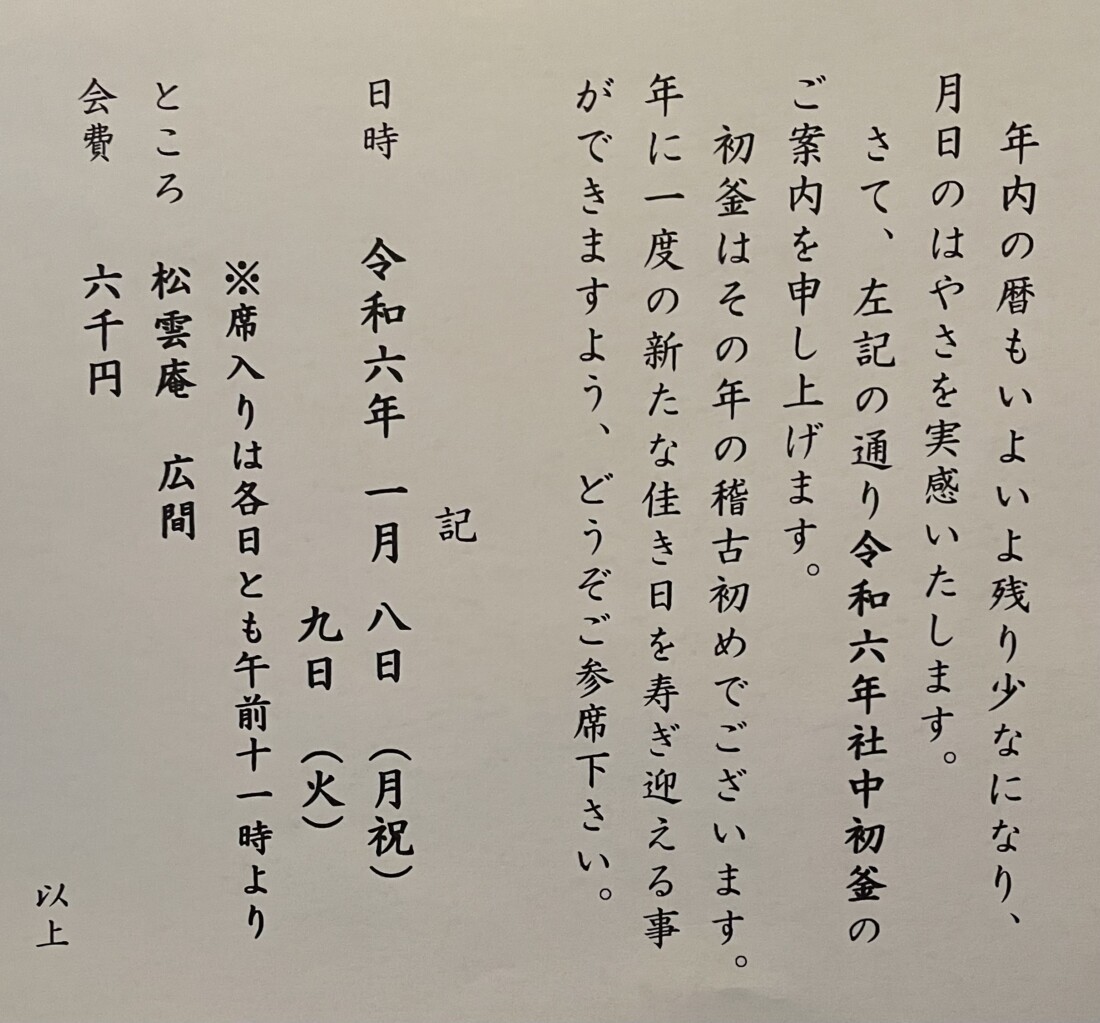 年内の暦もいよいよ残り少なになり、
月日のはやさを実感いたします。
さて、左記の通り令和六年社中初釜の
ご案内を申し上げます。
初釜はその年の稽古初めでございます。
年に一度の新たな佳き日を寿ぎ迎える事
ができますよう、どうぞご参席下さい。
記
日時　令和六年　一月　八日　（月祝）
九日　（火）
※席入りは各日とも午前十一時より
ところ　松雲庵　広間
会費　六千円
以上